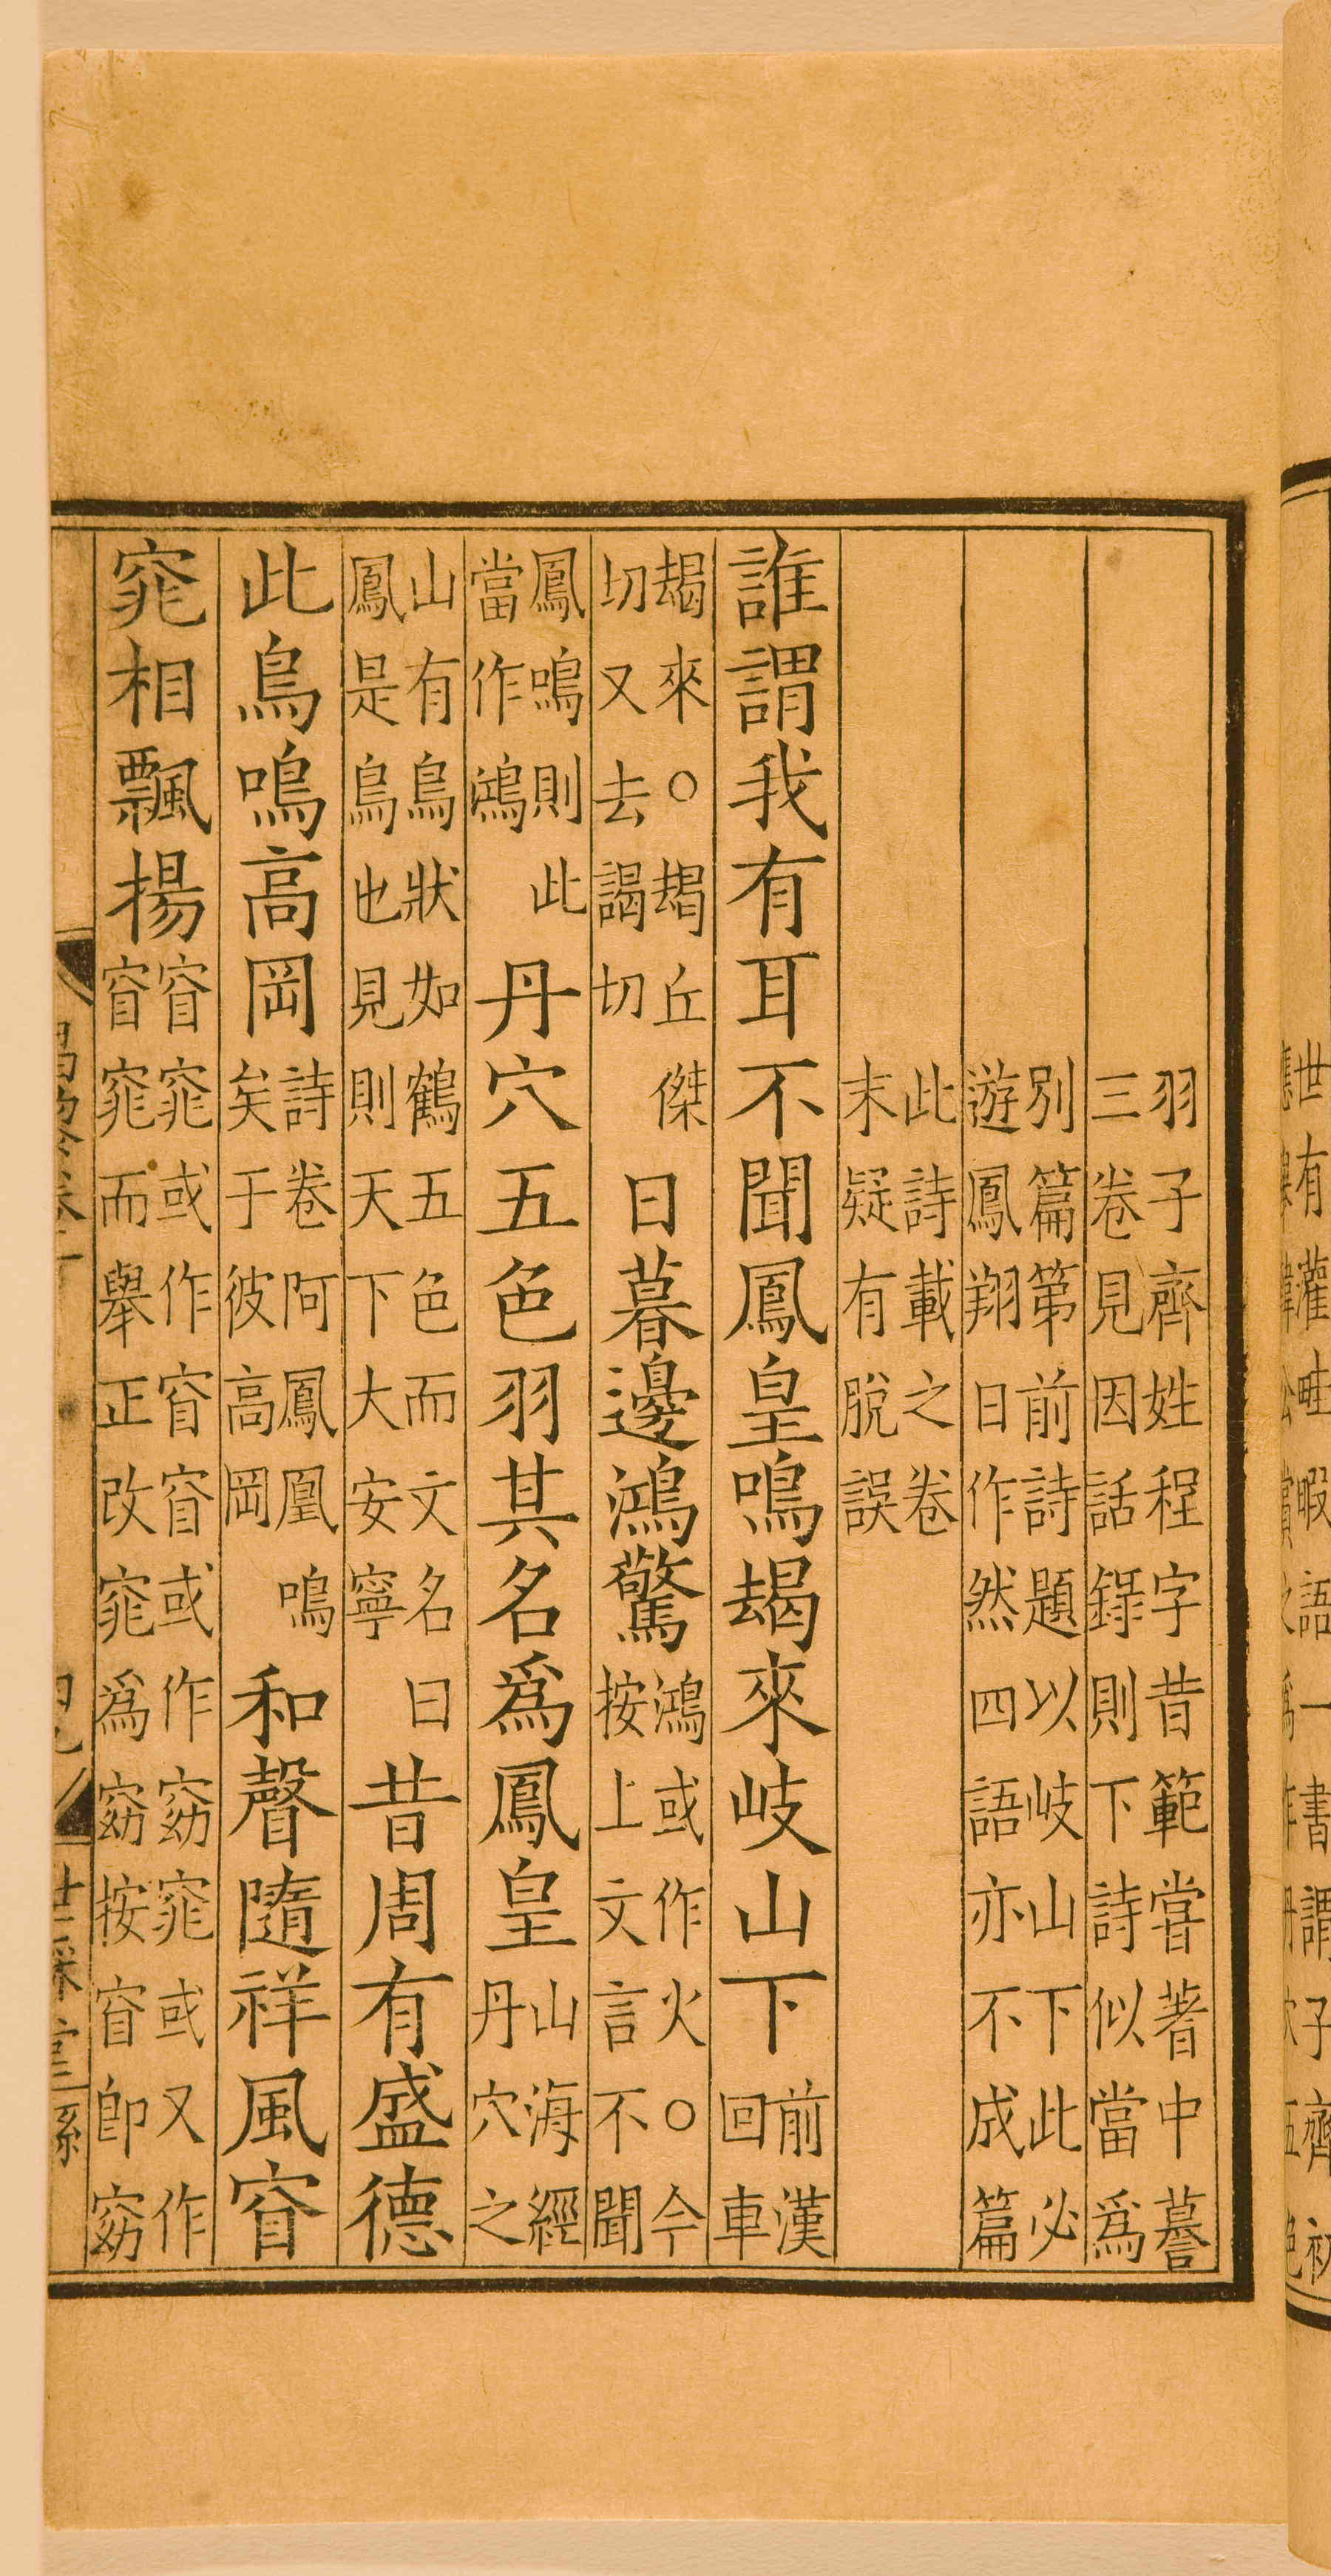 世有灌畦暇語一書謂子齊初
羽子齊姓程字昔範嘗著中謩
三卷見因話錄則下詩似當爲
別篇第前詩題以岐山下此必
遊鳳翔日作然四語亦不成篇
此詩載之卷
末疑有脫誤
誰謂我有耳不聞鳳皇鳴朅來岐山下前漢
回車
朅來○朅丘傑
切又去謁切
日暮邊鴻驚鴻或作火○今
按上文言不聞
鳳鳴則此
當作鴻
丹穴五色羽其名爲鳳皇山海經
丹穴之
山有鳥狀如鶴五色而文名曰
鳳是鳥也見則天下大安寧
昔周有盛德
此鳥鳴高岡詩卷阿鳳凰鳴
矣于彼高岡
和聲隨祥風窅
窕相飄揚窅窕或作窅窅或作窈窕或又作
窅窕而舉正改窕爲窈按窅卽窈